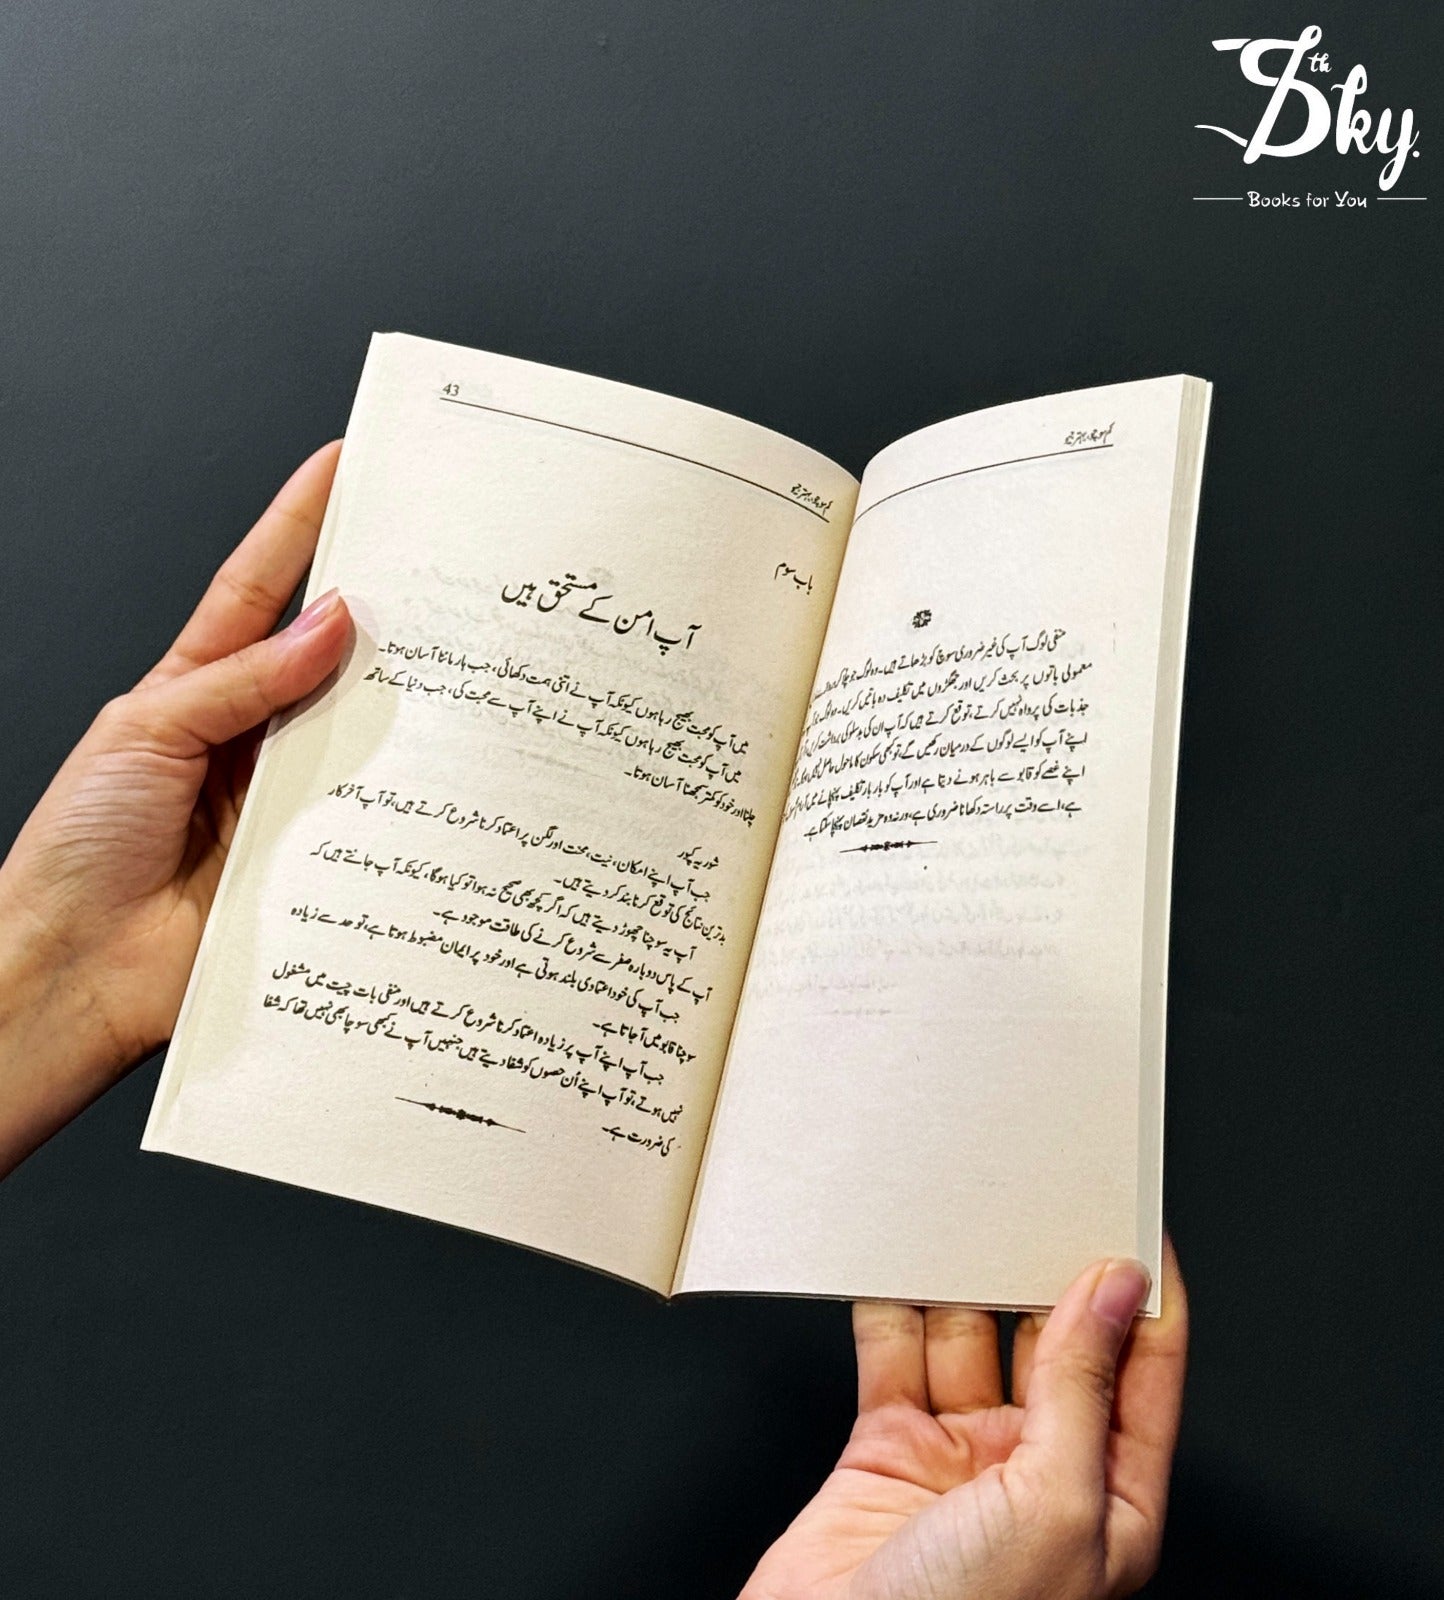 7th Sky.
Books for You
کم سوچیں، بہتر جئیں
منفی لوگ آپ کی غیر ضروری سوچ کو بڑھاتے ہیں۔ وہ لوگ جو چاہ کر
معمولی باتوں پر بحث کریں اور جھگڑوں میں تکلیف دہ باتیں کریں۔ وہ لوگ جو آپ کے
جذبات کی پرواہ نہیں کرتے، توقع کرتے ہیں کہ آپ ان کی بدسلوکی برداشت کریں
اپنے آپ کو ایسے لوگوں کے درمیان رکھیں گے تو کبھی سکون کا ماحول حاصل نہیں ہوگا۔
اپنے غصے کو قابو سے باہر ہونے دیتا ہے اور آپ کو بار بار تکلیف پہنچانے میں آرام
ہے، اسے وقت پر راستہ دکھانا ضروری ہے، ورنہ وہ مزید نقصان پہنچا سکتا ہے۔
43
کم سوچیں، بہتر جئیں
باب سوم
آپ امن کے مستحق ہیں
میں آپ کو محبت بھیج رہا ہوں کیونکہ آپ نے اتنی ہمت دکھائی، جب ہار ماننا آسان ہوتا۔
میں آپ کو محبت بھیج رہا ہوں کیونکہ آپ نے اپنے آپ سے محبت کی، جب دنیا کے ساتھ
چلنا اور خود کو کمتر سمجھنا آسان ہوتا۔
شوریہ کپور
جب آپ اپنے امکان، نیت، محنت اور لگن پر اعتماد کرنا شروع کرتے ہیں، تو آپ آخرکار
بدترین نتائج کی توقع کرنا بند کر دیتے ہیں۔
آپ یہ سوچنا چھوڑ دیتے ہیں کہ اگر کچھ بھی صحیح نہ ہوا تو کیا ہوگا، کیونکہ آپ جانتے ہیں کہ
آپ کے پاس دوبارہ صفر سے شروع کرنے کی طاقت موجود ہے۔
جب آپ کی خود اعتمادی بلند ہوتی ہے اور خود پر ایمان مضبوط ہوتا ہے، تو حد سے زیادہ
سوچنا قابو میں آ جاتا ہے۔
جب آپ اپنے آپ پر زیادہ اعتماد کرنا شروع کرتے ہیں اور منفی بات چیت میں مشغول
نہیں ہوتے، تو آپ اپنے اُن حصوں کو شفا دیتے ہیں جنہیں آپ نے کبھی سوچا بھی نہیں تھا کہ شفا
کی ضرورت ہے۔